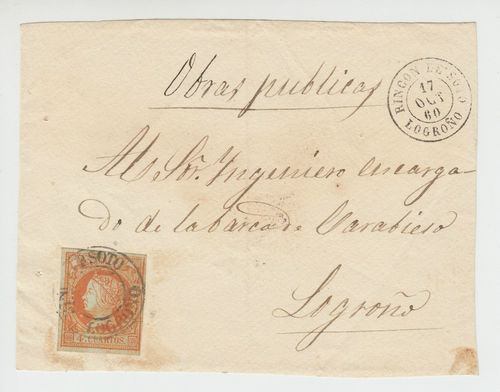 Obras publicas
RINCON DE SOTO
17
OCT
60
LOGROÑO
Al Sr. Ingeniero encarga-
do de la barca de
Logroño
SOTO
LOGROÑO
4 CUARTOS.